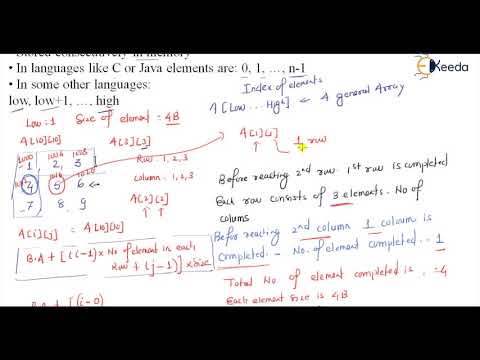 • Stored consecutively in memory
• In languages like C or Java elements are: 0, 1, ..., n-1
• In some other languages:
low, low+1, ..., high
Ekeeda
Index of elements
A[Low... High] ← A general Array
Low=1 Size of element = 4B
A[10][10] A[3][3]
A[i][j]
1 row
1000 1004 1008
1 2, 3
4 5 6 ←
7, 8, 9
Row: 1, 2, 3
Column: 1, 2, 3
A[2][2]
Before reaching 2nd row 1st row is completed
Each row consists of 3 elements. No of
colums
A[i][j] = A[10][10]
B.A + [(i-1) x No of element in each
Row + (j-1)] x size
Before reaching 2nd column 1 coloum is
completed - No. of element completed. - 1
Total No of element completed is = 4
Each element size is 4B
B.A + [(i-0)